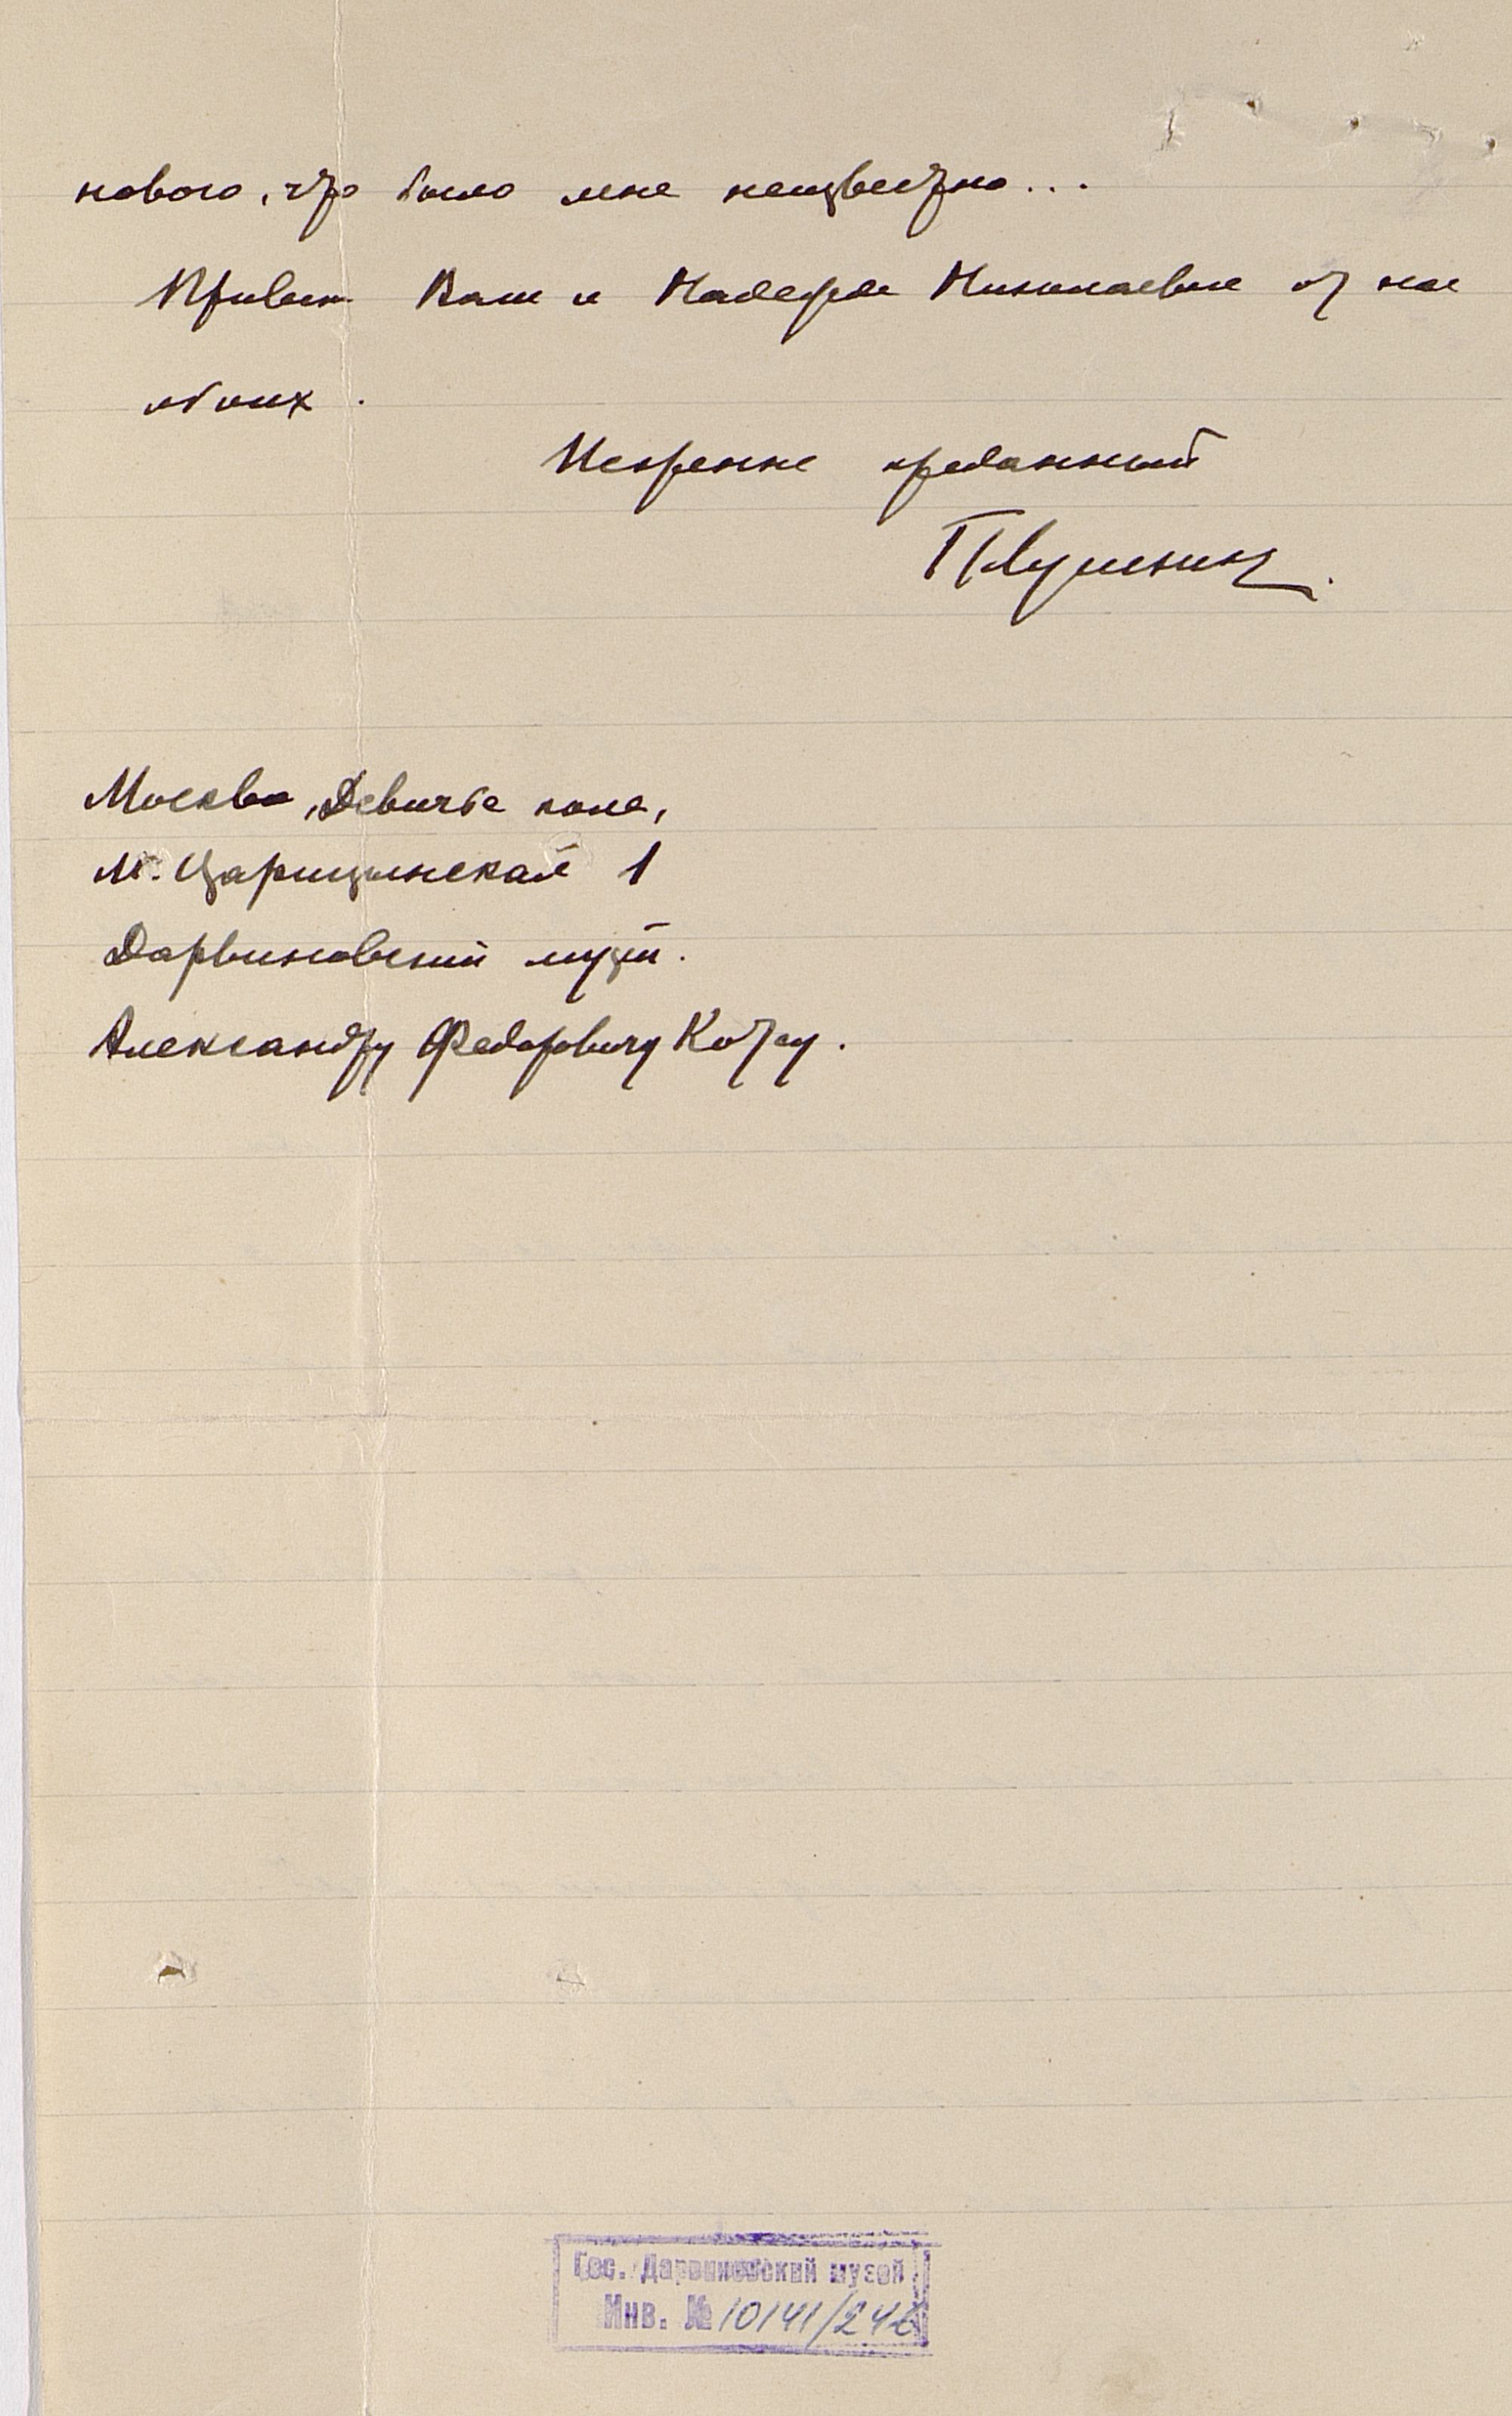 нового, что было мне неизвестно...
Привет Вам и Надежде Николаевне от нас
обоих.
Искренне преданный
Москва, Девичье поле,
М. Царицинская 1
Дарвиновский музей.
Александру Федоровичу Котсу.
Гос. Дарвиновский музей
Инв. № 10141/246